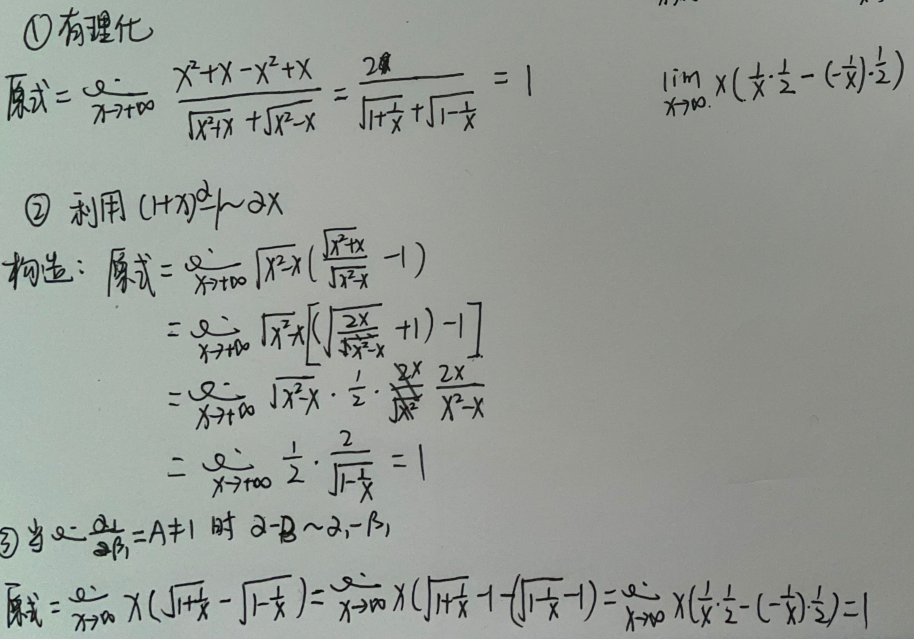 ① 有理化
原式 = lim x→+∞ (x²+x-x²+x)/(√(x²+x) + √(x²-x)) = 2/(√(1+1/x) + √(1-1/x)) = 1
lim x→∞. x(1/x·1/2 - (-1/x)·1/2)
② 利用 (1+x)^α-1~αx
构造: 原式 = lim x→+∞ √(x²-x) (√(x²+x)/√(x²-x) - 1)
= lim x→+∞ √(x²-x) [(√(2x/(x²-x) + 1) - 1]
= lim x→+∞ √(x²-x) · 1/2 · 2x/(x²-x)
= lim x→+∞ 1/2 · 2/√(1-1/x) = 1
③ 当 lim α₁/β₁ = A≠1 时 α-β ~ α₁-β₁
原式 = lim x→∞ x(√(1+1/x) - √(1-1/x)) = lim x→∞ x(√(1+1/x) - 1 - (√(1-1/x) - 1) = lim x→∞ x(1/x·1/2 - (-1/x)·1/2) = 1